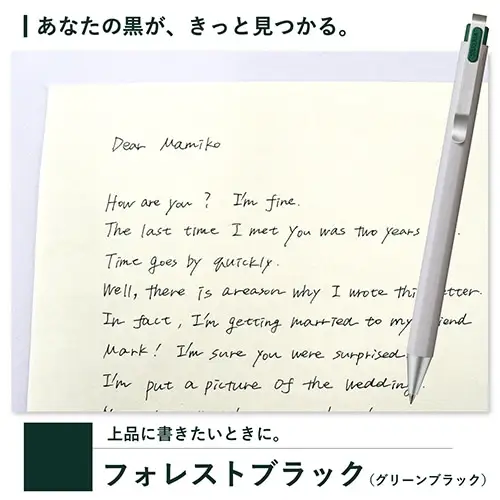 あなたの黒が、きっと見つかる。
Dear Mamiko
How are you? I'm fine.
The last time I met you was two years
Time goes by quickly.
Well, there is a reason why I wrote this
In fact, I'm getting married to my
Mark! I'm sure you were surprised.
I'm put a picture of the wedding.
上品に書きたいときに。
フォレストブラック(グリーンブラック)